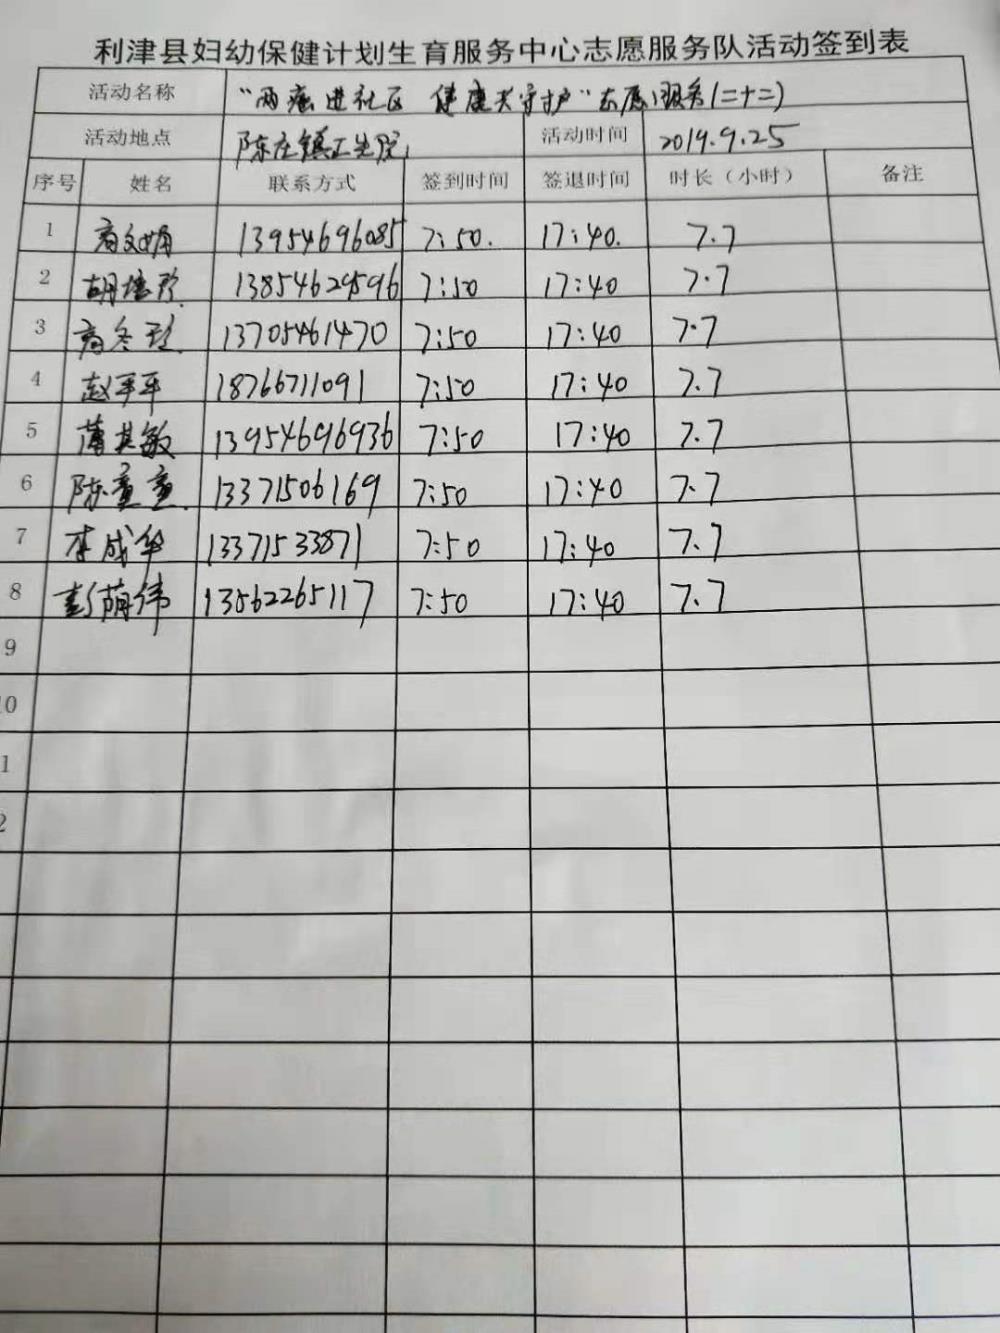 利津县妇幼保健计划生育服务中心志愿服务队活动签到表
活动名称 “两癌进社区 健康共守护”志愿服务(二十二)
活动地点 陈庄镇卫生院 活动时间 2019.9.25
序号 姓名 联系方式 签到时间 签退时间 时长（小时） 备注
1 13954696085 7:50. 17:40. 7.7
2 胡培珍 13854629596 7:50 17:40 7.7
3 13705461470 7:50 17:40 7.7
4 赵平平 18766711091 7:50 17:40 7.7
5 蒲其敏 13954696936 7:50 17:40 7.7
6 陈童童 13371506169 7:50 17:40 7.7
7 李成华 13371533871 7:50 17:40 7.7
8 彭萌伟 13562265117 7:50 17:40 7.7
9
0
1
2